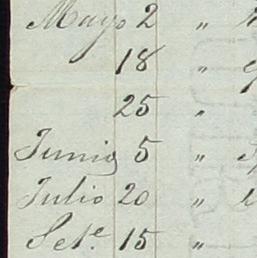 Mayo 2 "
18 "
25 "
Junio 5 "
Julio 20 "
Set.e 15 "